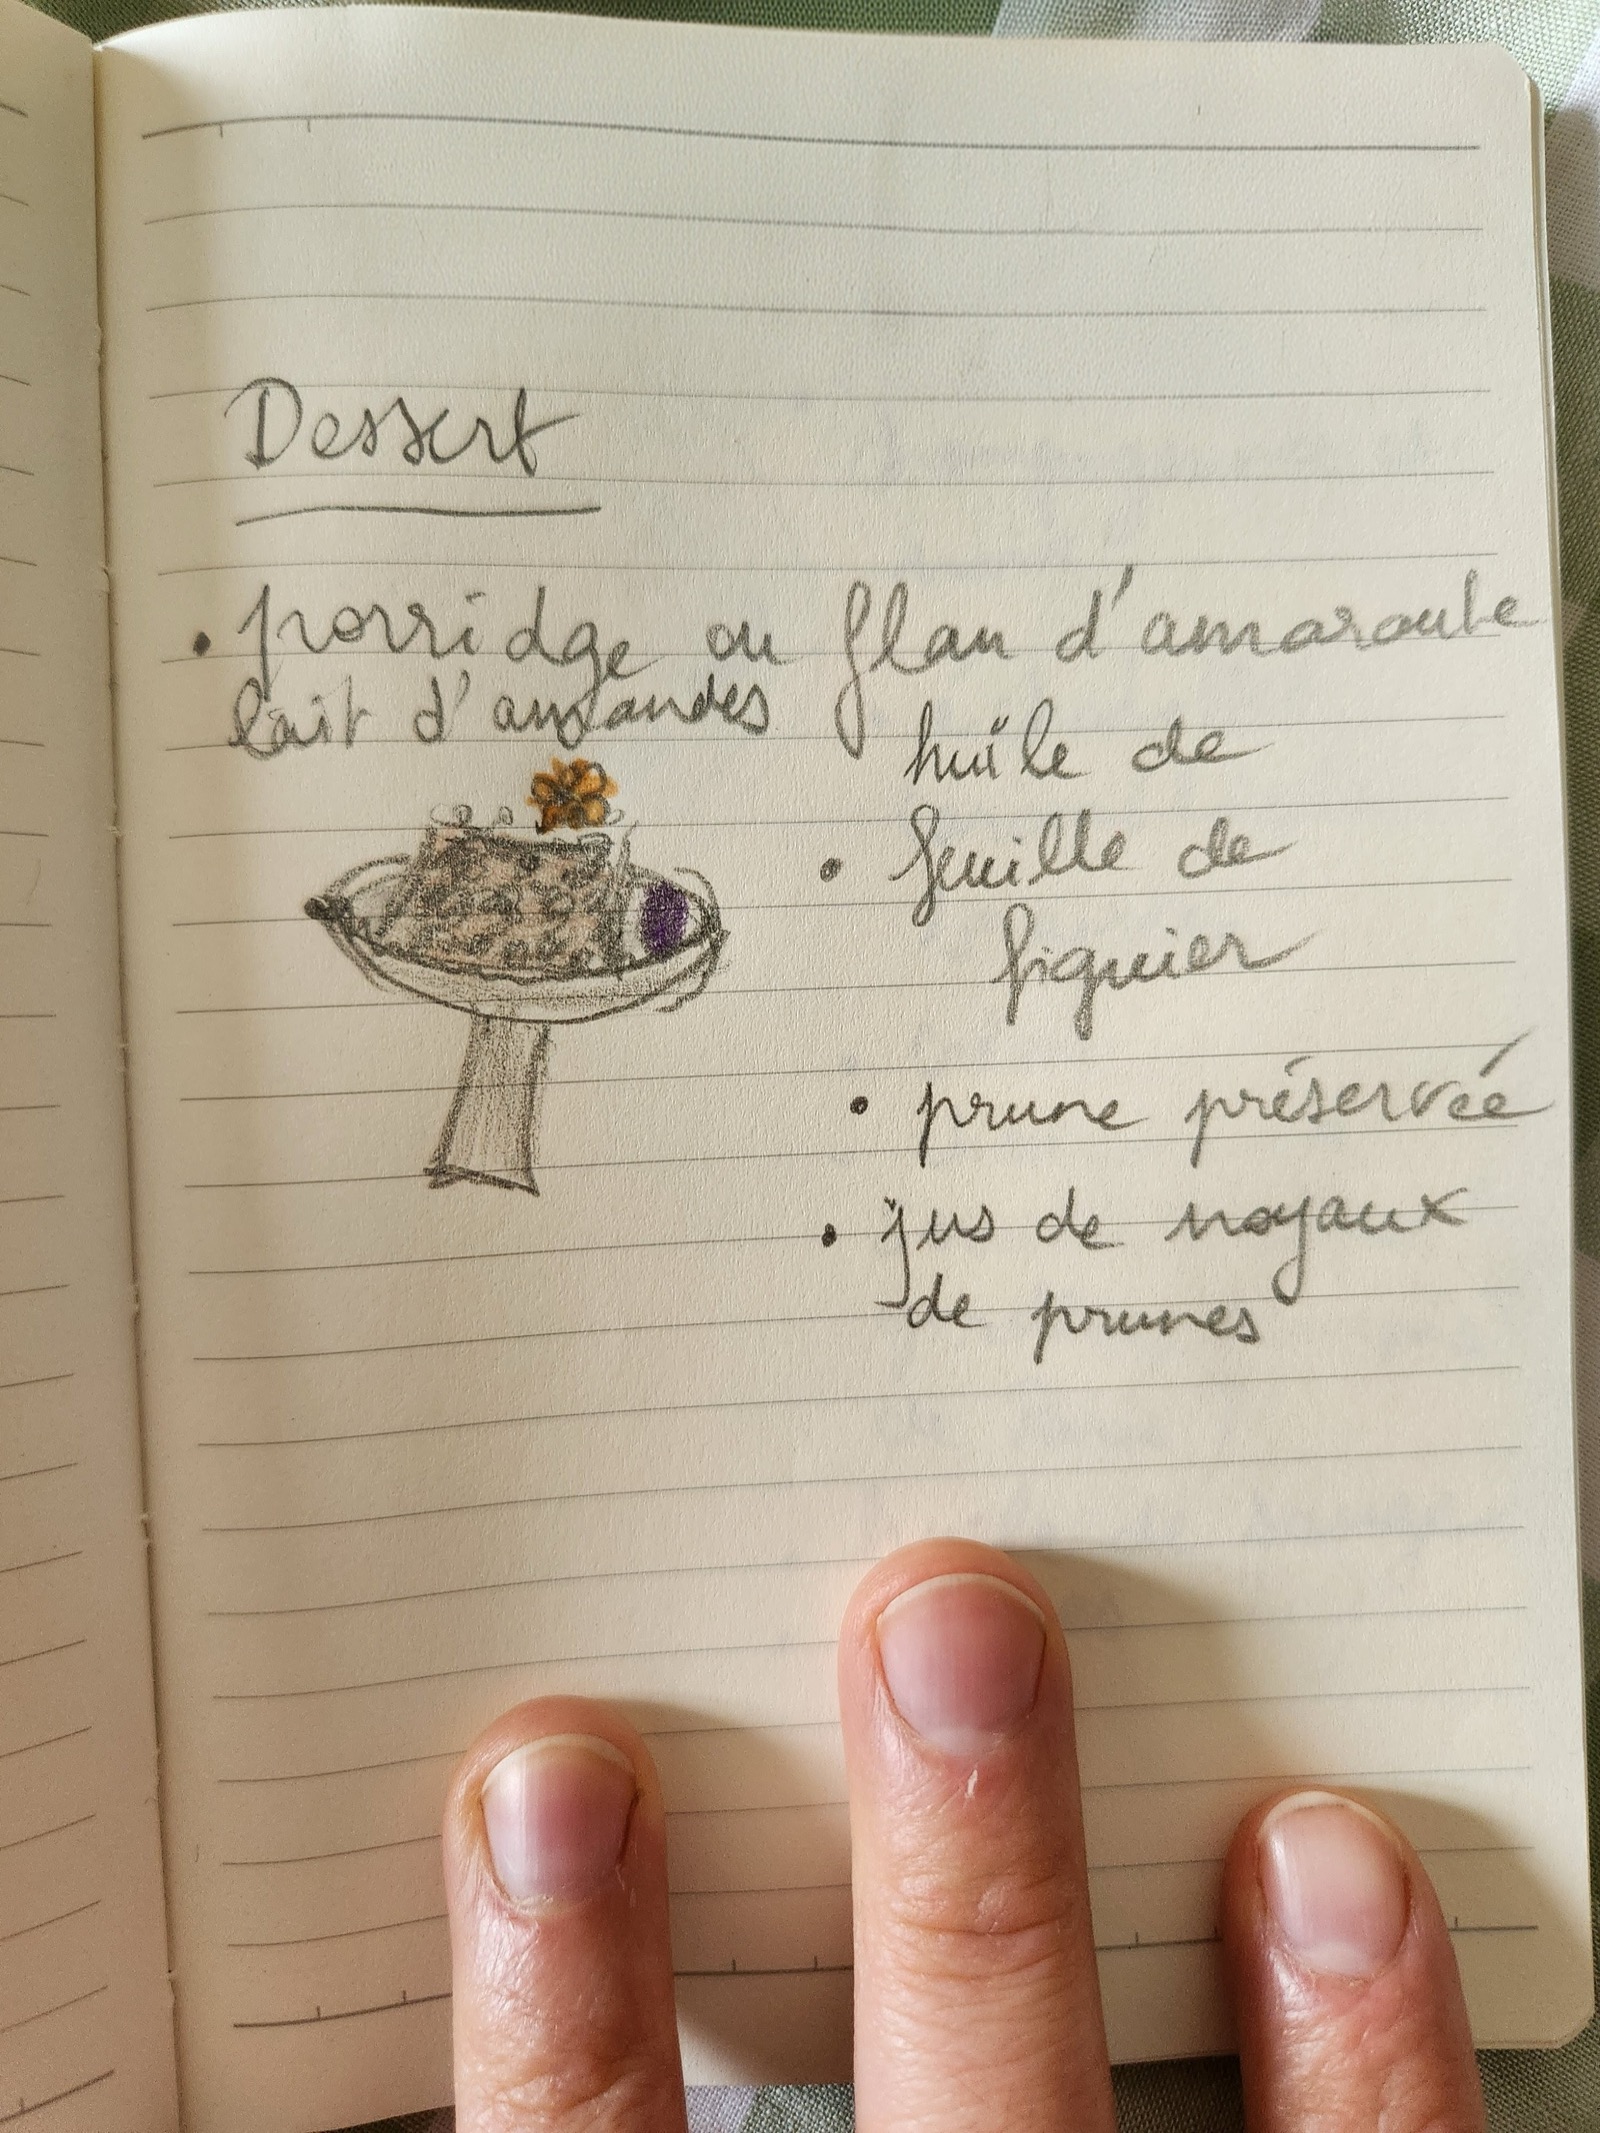 Dessert
• porridge ou flan d'amarante
lait d'amandes
huile de
• feuille de
figuier
• prune préservée
• jus de noyaux
de prunes